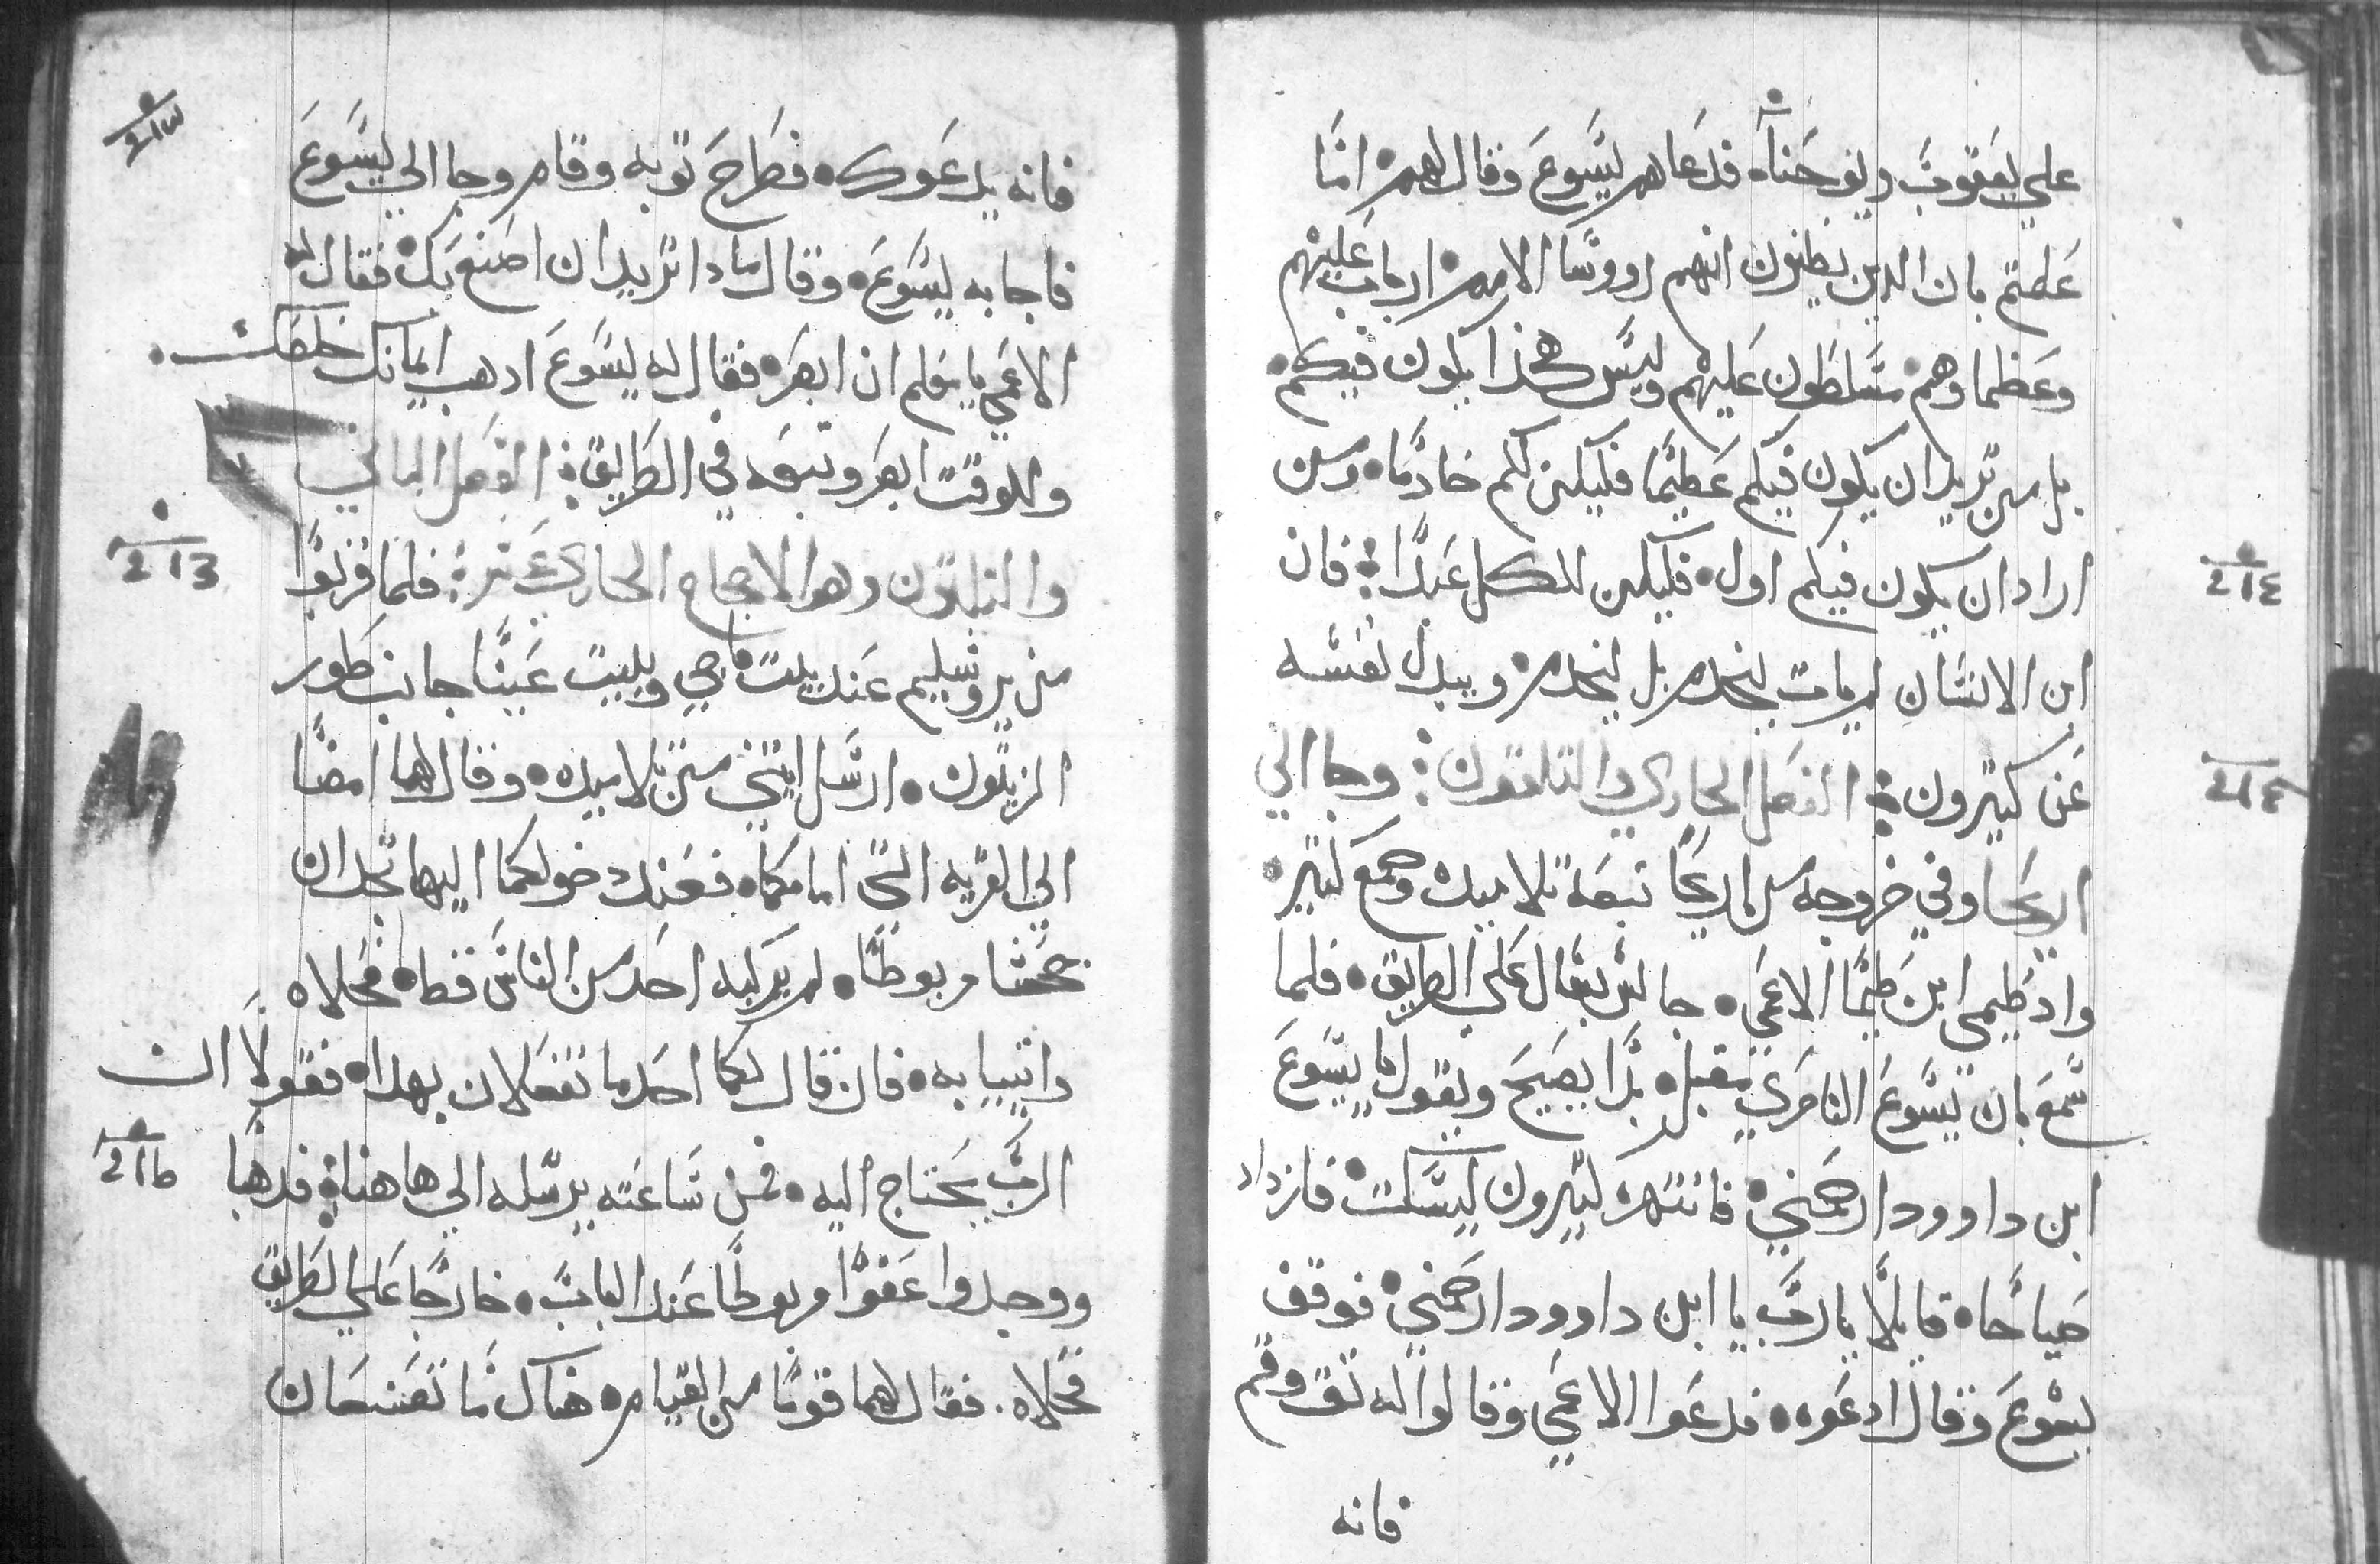 علي يعقوب ويوحنا فدعاهم يسوع وقال لهم اما
علمتم بان الدين يظنون انهم رووسا الامم ارباب عليهم
وعظماوهم متسلطون عليهم وليس هكذا يكون فيكم
بل من يريد ان يكون فيكم عظيما فليكن لكم خادما ومن
اراد ان يكون فيكم اول فليكن للكل عبدا فان
ابن الانسان لم يات ليخدم بل ليخدم ويبدل نفسه
عن كثيرون الفصل الحادي والتلتون وجا الي
اريحا وفي خروجه من اريحا تبعه تلاميده وجمع كثير
واد طيمي ابن طيما الاعمي جالس يسال علي الطريق فلما
سمع بان يسوع الناصري مقبل بدا يصيح ويقول يا يسوع
ابن داوود ارحمني فانتهره كثيرون ليسكت فازداد
صياحا قايلا يا رب يا ابن داوود ارحمني فوقف
يسوع وقال ادعوه فدعوا الاعمي وقالوا له تق وقم
فانه
فانه يدعوك فطرح توبه وقام وجا الي يسوع
فاجابه يسوع وقال مادا تريد ان اصنع بك فقال له
الاعمي يا معلم ان ابصر فقال له يسوع ادهب ايمانك خلصك
وللوقت ابصر وتبعه في الطريق الفصل التاني
والتلتون وهو الاصحاح الحادي عشر فلما قربوا
من يروشليم عند بيت فاجي وبيت عينا جانب طور
الزيتون ارسل اتنين من تلاميده وقال لهما امضيا
الي القريه التي امامكما فعند دخولكما اليها تجدان
جحشا مربوطا لم يركبه احد من الناس قط فحلاه
واتيا به فان قال لكما احد ما تفعلان بهدا فقولا ان
الرب يحتاج اليه فمن ساعته يرسله الي هاهنا فدهبا
ووجدوا عفوا مربوطا عند الباب خارجا علي الطريق
فحلاه فقال لهما قوما من القيام هناك ما تصنعان